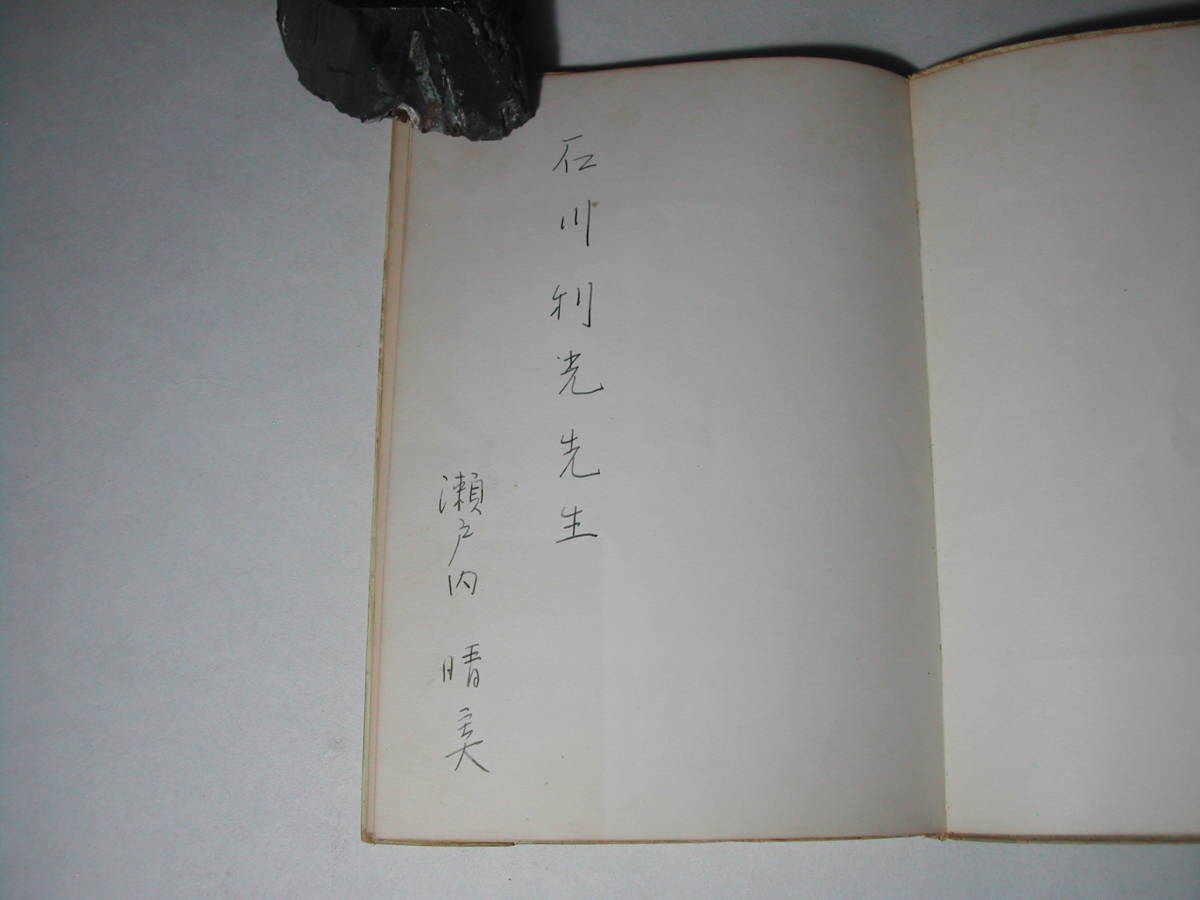 石川利光先生
瀬戸内 晴美